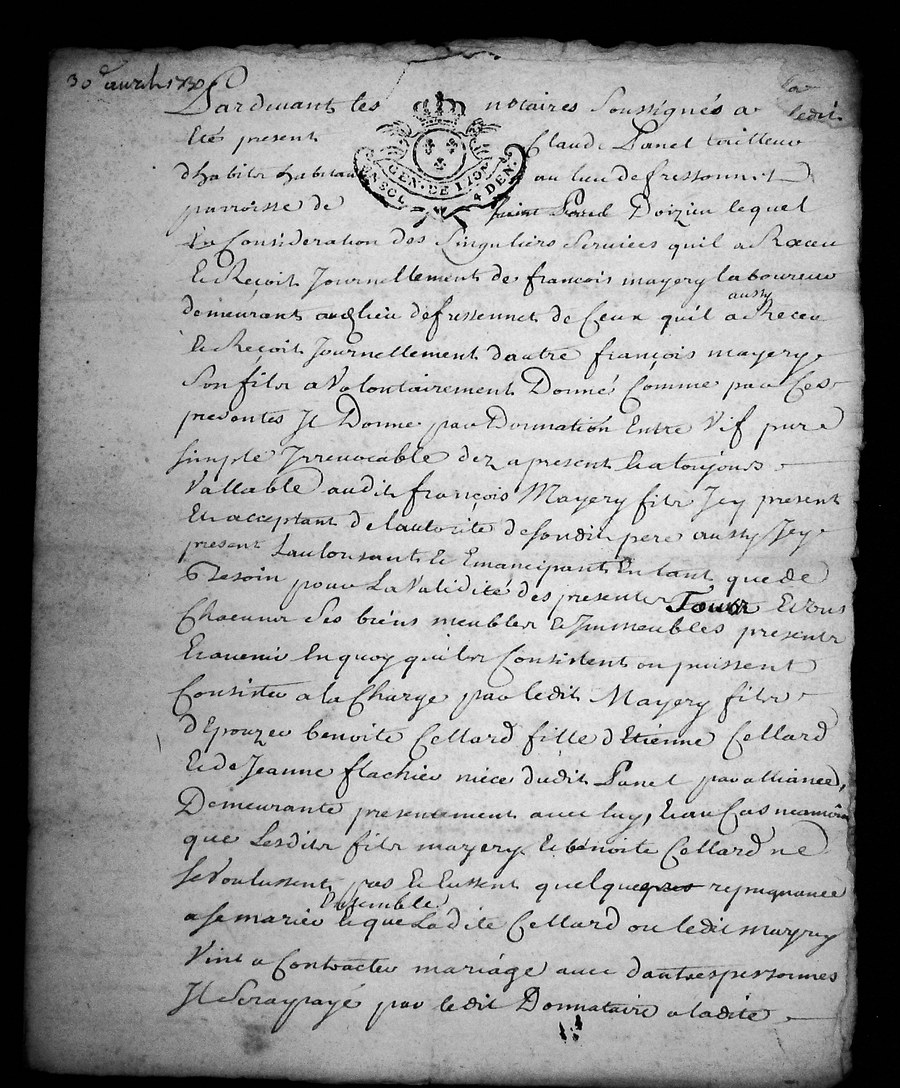 30e avril 1730
Pardevant les notaires Soussignés a
ledit
été present Claude Panel tailleur
dhabits habitant au lieu de fressonnet
parroisse de Saint Paul Doizieu lequel
En Consideration des Singuliers Services quil a Receu
Et Reçoit Journellement de françois mayery laboureur
demeurant audi lieu de fressennet de Ceux quil a aussy Receu
Et Reçoit Journellement dautre françois mayery
Son fils a Volontairement Donné Comme par Ces
presentes Il Donne par Donnation Entre Vif pure
simple Irrevocable dez a present Et a toujours
Vallable audit françois Mayery fils Jcy present
Et acceptant de lautorité de sondit pere aussy Jcy
present Lautorisant Et Emancipant En tant que de
Besoin pour La Validité des presentes Tous Et vns
Chacuns Ses biens meubles Et Jmmeubles presents
Et avenir En quoy quils Consistent ou puissent
Consister a la Charge par ledit Mayery fils
d'Epouzer benoite Cellard fille d'Etienne Cellard
Et de Jeanne flachier niéce dudit Panel par alliance,
Demeurante presentement avec luy, Et au Cas neamoins
que Lesdits fils mayery Et bénoite Cellard ne
se Voulussent pas Et Eussent quelque repugnance
a se marier Ensemble Et que Ladite Cellard ou ledit mayery
Vint a Contracter mariage avec dautres personnes
Il Sera payé par ledit Donnataire a ladite
GEN. DE LYON
EN SCL 4 DEN.